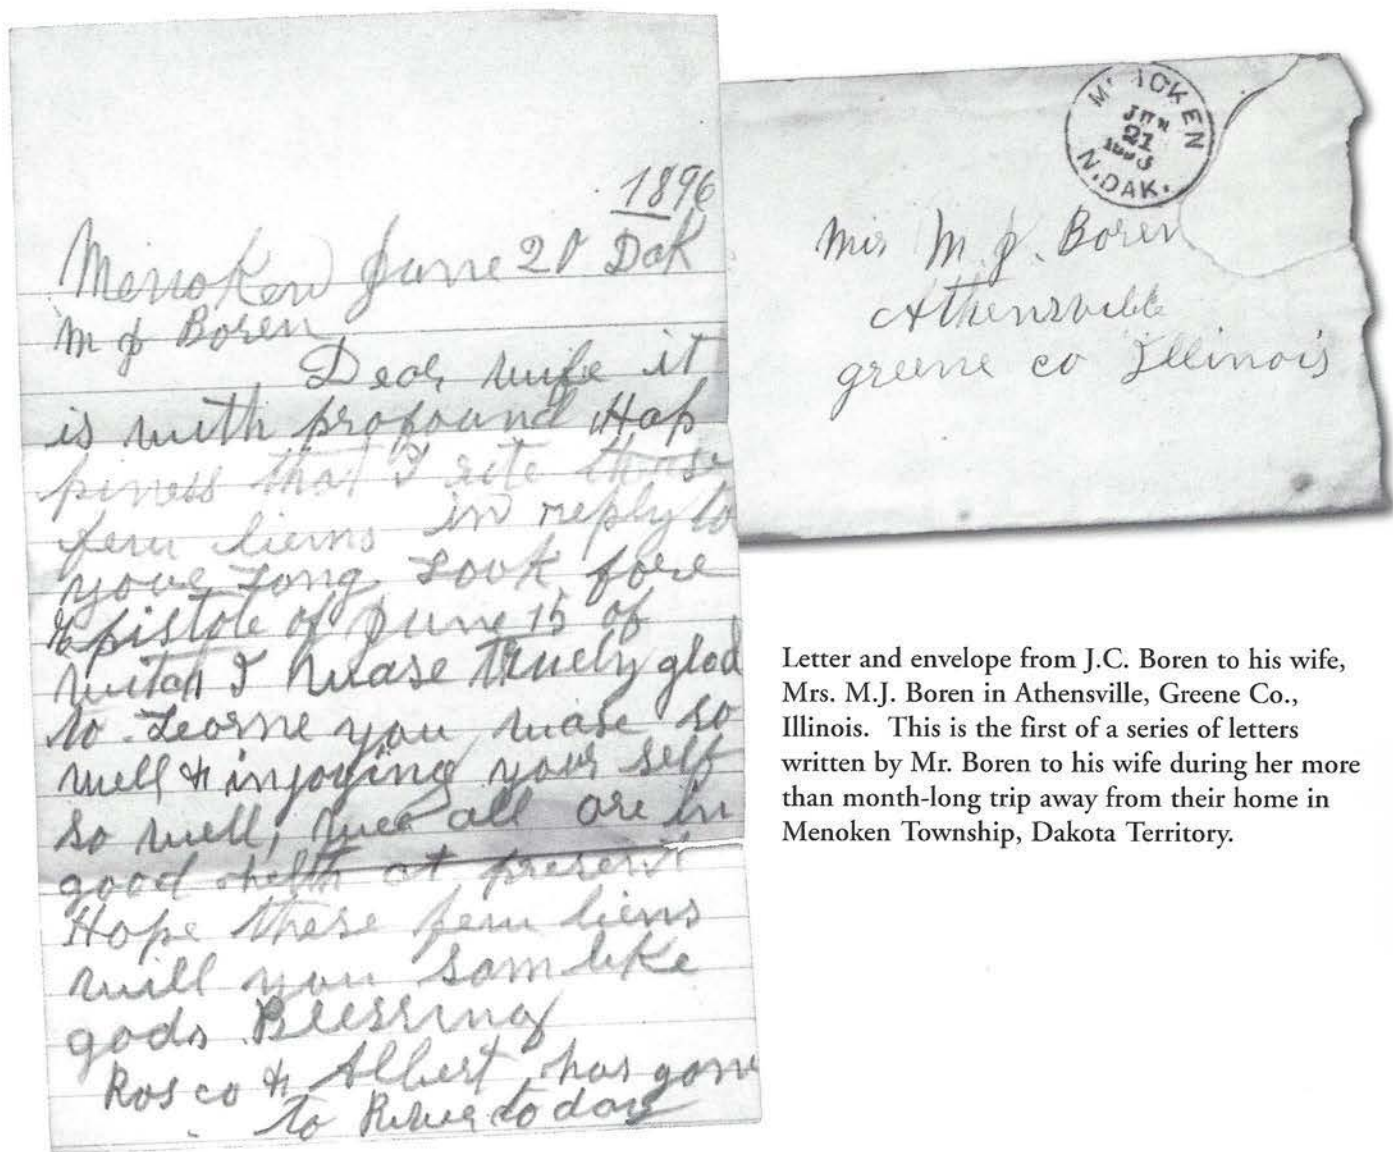 1896
Menoken June 20 Dak
M J Boren
Dear wife it
is with profound Hap
piness that I rite these
few liens in reply to
youre Long Look fore
Epistole of June 15 of
witch I wase truely glad
to Learne you wase so
well & injoying your self
so well, wee all are in
good helth at present
Hope these few liens
will you sam like
gods Blessing
Rosco & Albert has gone
to River to day
M OKEN
JUN
21
N.DAK.
Mis M. J. Boren
Athensville
greene co Illinois
Letter and envelope from J.C. Boren to his wife,
Mrs. M.J. Boren in Athensville, Greene Co.,
Illinois. This is the first of a series of letters
written by Mr. Boren to his wife during her more
than month-long trip away from their home in
Menoken Township, Dakota Territory.